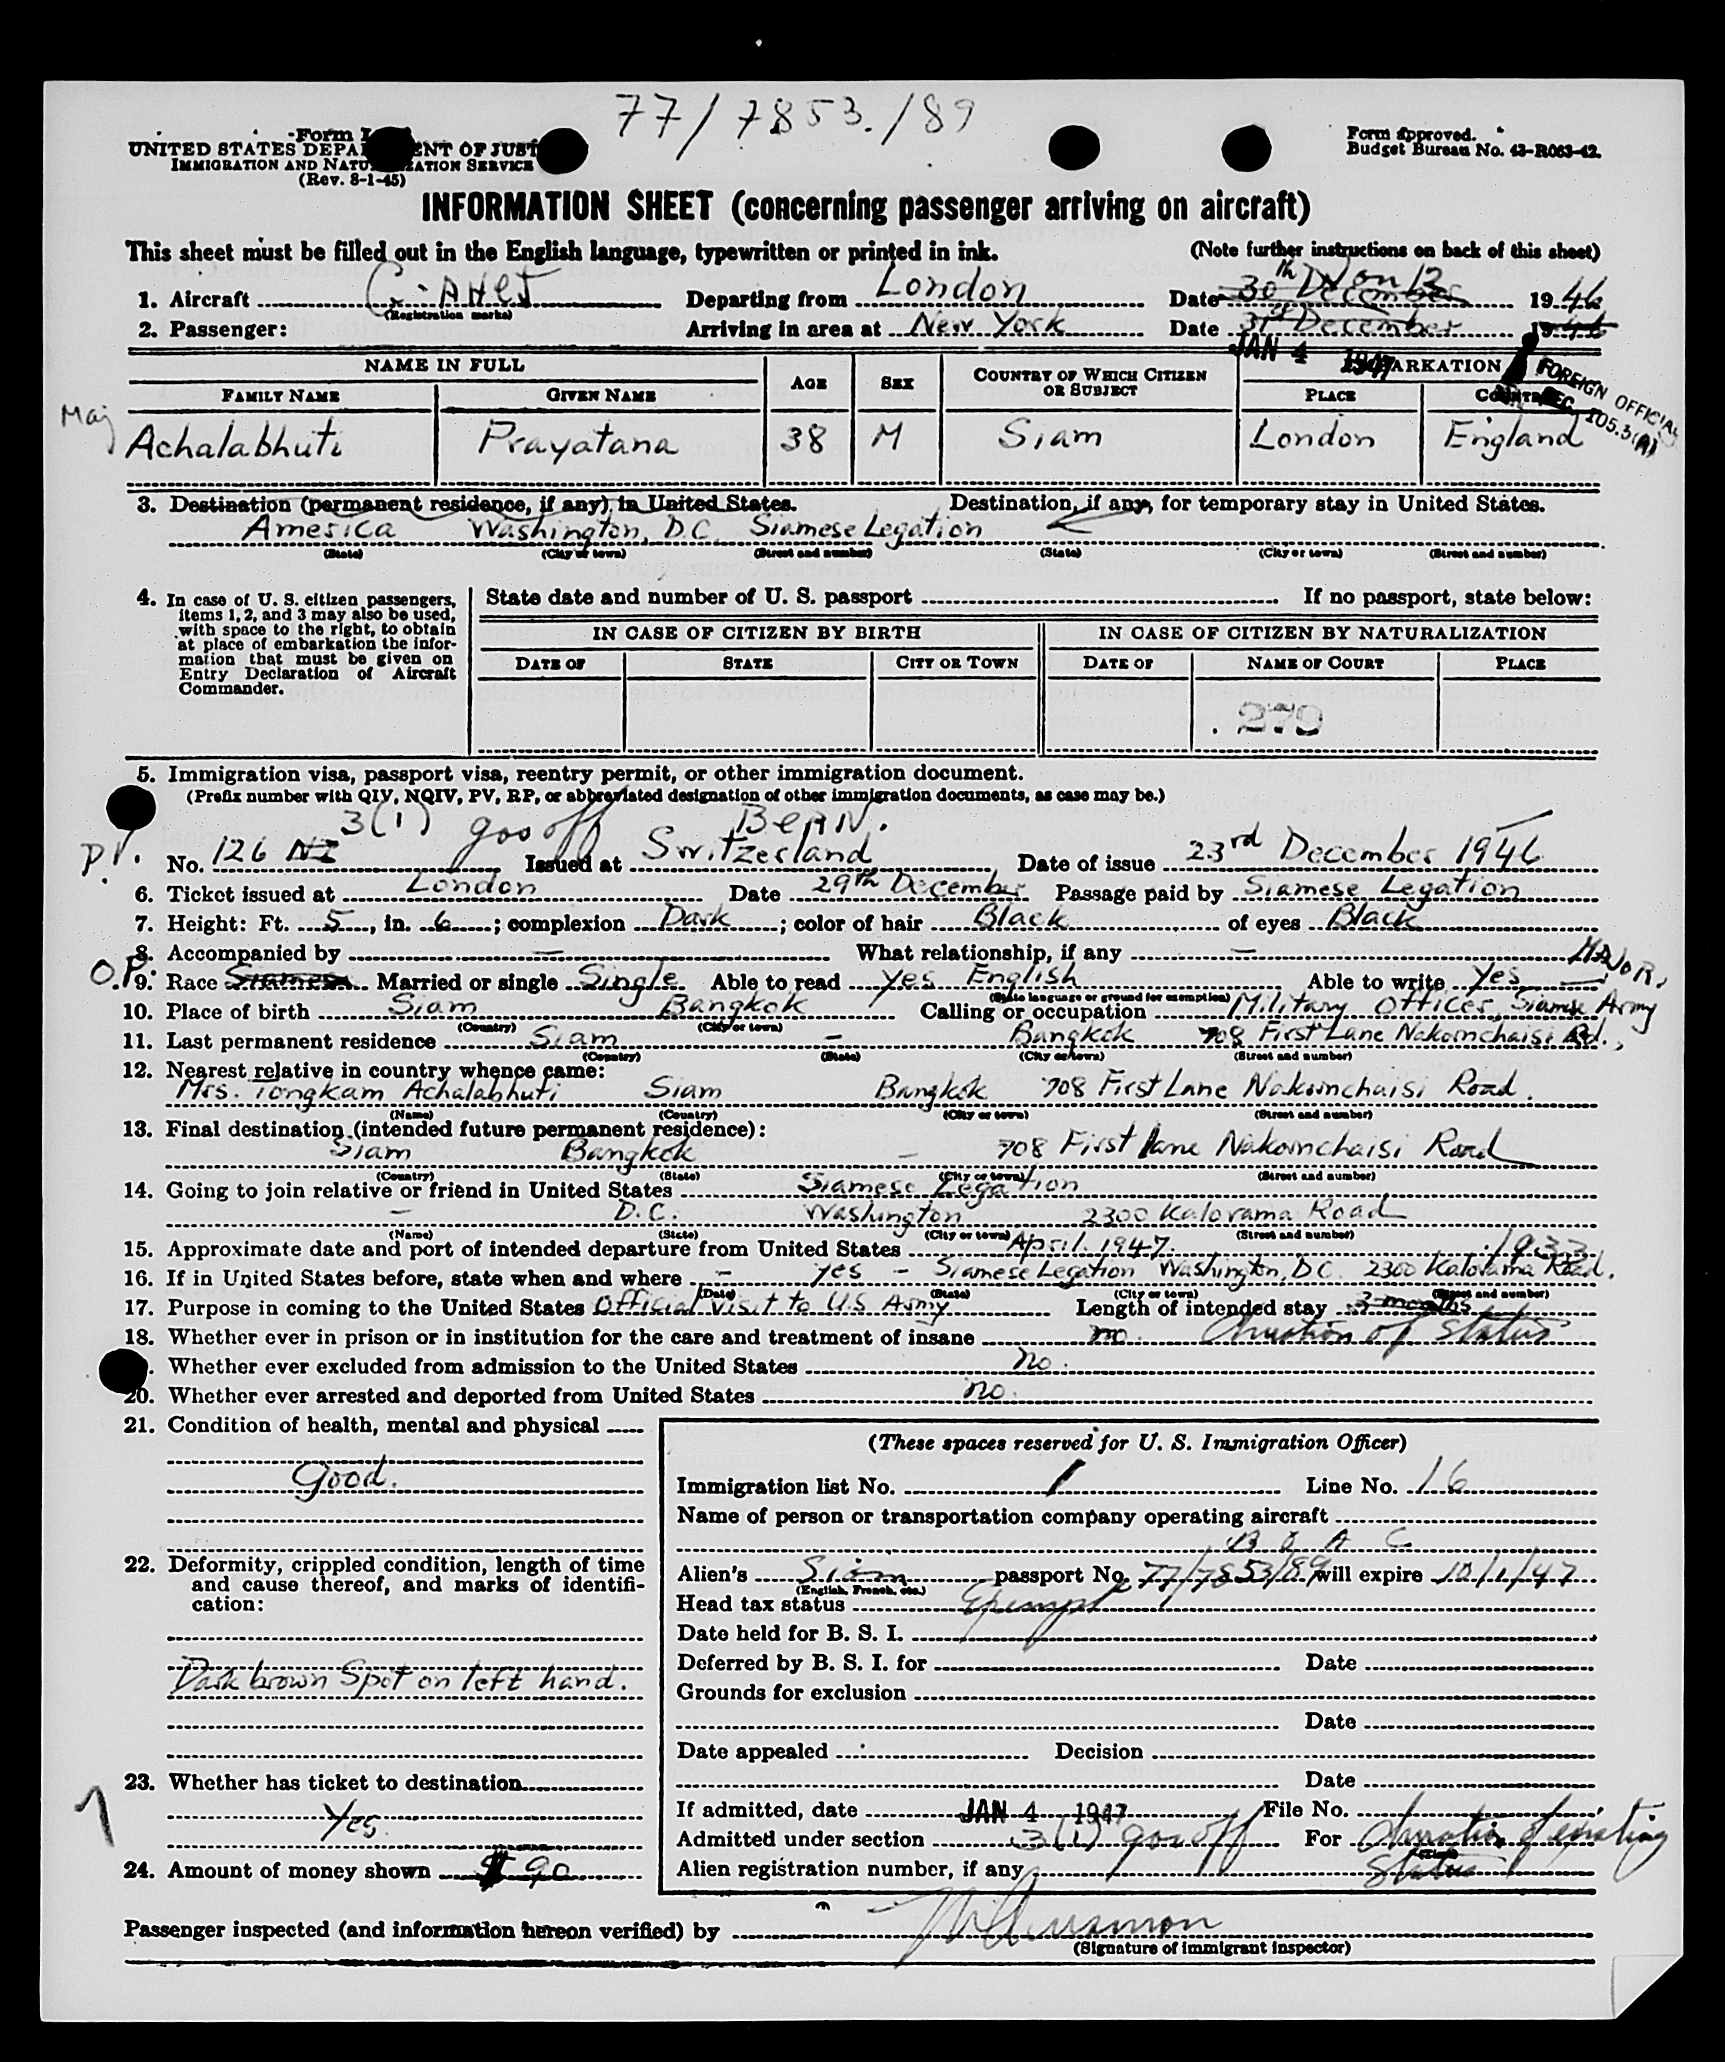 77/7853./89
Form
UNITED STATES DEPARTMENT OF JUSTICE
IMMIGRATION AND NATURALIZATION SERVICE
(Rev. 8-1-45)
Form approved.
Budget Bureau No. 43-R063-42.
INFORMATION SHEET (concerning passenger arriving on aircraft)
This sheet must be filled out in the English language, typewritten or printed in ink. (Note further instructions on back of this sheet)
1. Aircraft G-AHEJ Departing from London Date 30th December 1946
(Registration marks)
2. Passenger: Arriving in area at New York Date 31st December 1946
JAN 4 1947
NAME IN FULL AGE SEX COUNTRY OF WHICH CITIZEN OR SUBJECT EMBARKATION
FAMILY NAME GIVEN NAME PLACE COUNTRY
FOREIGN OFFICIAL
SEC. 105.3(A)
Maj Achalabhuti Prayatana 38 M Siam London England
3. Destination (permanent residence, if any) in United States. Destination, if any, for temporary stay in United States.
America Washington, D.C. Siamese Legation
(State) (City or town) (Street and number) (State) (City or town) (Street and number)
4. In case of U. S. citizen passengers, items 1, 2, and 3 may also be used, with space to the right, to obtain at place of embarkation the information that must be given on Entry Declaration of Aircraft Commander.
State date and number of U. S. passport If no passport, state below:
IN CASE OF CITIZEN BY BIRTH IN CASE OF CITIZEN BY NATURALIZATION
DATE OF STATE CITY OR TOWN DATE OF NAME OF COURT PLACE
279
5. Immigration visa, passport visa, reentry permit, or other immigration document.
(Prefix number with QIV, NQIV, PV, RP, or abbreviated designation of other immigration documents, as case may be.)
3(1) gov off Bern.
P.V. No. 126 Issued at Switzerland Date of issue 23rd December 1946
6. Ticket issued at London Date 29th December Passage paid by Siamese Legation
7. Height: Ft. 5, in. 6; complexion Dark; color of hair Black of eyes Black
8. Accompanied by — What relationship, if any —
MAJOR,
O.P. 9. Race Siamese Married or single Single Able to read yes English Able to write yes
(State language or ground for exemption)
10. Place of birth Siam Bangkok Calling or occupation Military Officer, Siamese Army
(Country) (City or town)
11. Last permanent residence Siam — Bangkok 708 First Lane Nakornchaisi Rd.,
(Country) (State) (City or town) (Street and number)
12. Nearest relative in country whence came:
Mrs. Tongkam Achalabhuti Siam Bangkok 708 First Lane Nakornchaisi Road.
(Name) (Country) (City or town) (Street and number)
13. Final destination (intended future permanent residence):
Siam Bangkok — 708 First lane Nakornchaisi Road
(Country) (State) (City or town) (Street and number)
14. Going to join relative or friend in United States Siamese Legation
— D.C. Washington 2300 Kalorama Road
(Name) (State) (City or town) (Street and number)
15. Approximate date and port of intended departure from United States April. 1947.
1933
16. If in United States before, state when and where — yes — Siamese Legation Washington, D.C. 2300 Kalorama Road.
(Date) (State) (City or town) (Street and number)
17. Purpose in coming to the United States Official visit to U.S Army Length of intended stay 3 months
18. Whether ever in prison or in institution for the care and treatment of insane no. Duration of Status
19. Whether ever excluded from admission to the United States no.
20. Whether ever arrested and deported from United States no.
21. Condition of health, mental and physical
Good.
22. Deformity, crippled condition, length of time and cause thereof, and marks of identification:
Dark brown Spot on left hand.
23. Whether has ticket to destination
Yes
24. Amount of money shown $ 90
(These spaces reserved for U. S. Immigration Officer)
Immigration list No. 1 Line No. 16
Name of person or transportation company operating aircraft
B O A C
Alien's Siam passport No. 77/7853/89 will expire 10/1/47
(English, French, etc.)
Head tax status Exempt
Date held for B. S. I.
Deferred by B. S. I. for Date
Grounds for exclusion
Date
Date appealed Decision
Date
If admitted, date JAN 4 1947 File No.
Admitted under section 3(1) gov off For Duration of existing Status
(Time)
Alien registration number, if any
Passenger inspected (and information hereon verified) by
(Signature of immigrant inspector)